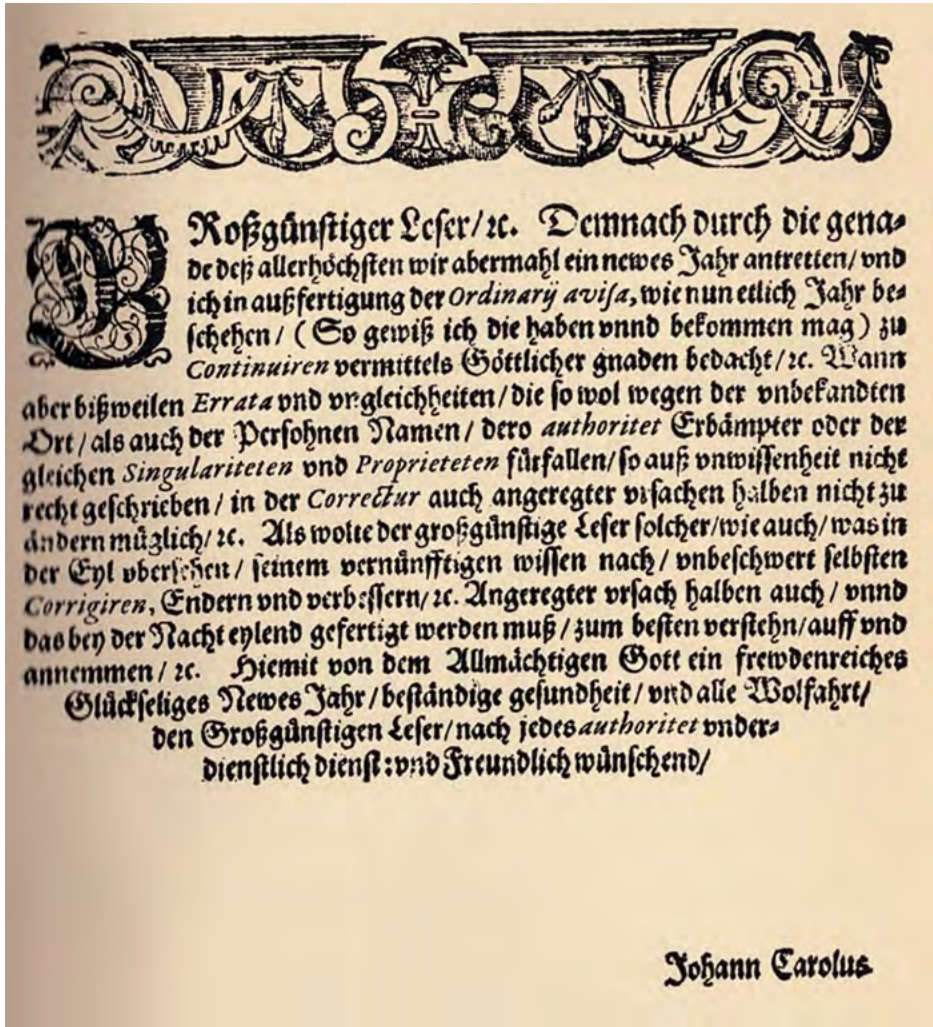 GRoßgünstiger Leser/ꝛc. Demnach durch die gena⸗
de deß allerhöchsten wir abermahl ein newes Jahr antretten/ vnd
ich in außfertigung der Ordinarÿ avisa, wie nun etlich Jahr be⸗
schehen / (So gewiß ich die haben vnnd bekommen mag) zu
Continuiren vermittels Göttlicher gnaden bedacht/ ꝛc. Wann
aber bißweilen Errata vnd vngleichheiten/ die so wol wegen der vnbekandten
Ort/ als auch der Persohnen Namen/ dero authoritet Erbämpter oder der
gleichen Singulariteten vnd Proprieteten fürfallen/ so auß vnwissenheit nicht
recht geschrieben / in der Correctur auch angeregter vrsachen halben nicht zu
ändern müglich/ ꝛc. Als wolte der großgünstige Leser solcher/wie auch/ was in
der Eyl vbersehen/ seinem vernünfftigen wissen nach/ vnbeschwert selbsten
Corrigiren, Endern vnd verbessern/ ꝛc. Angeregter vrsach halben auch / vnnd
das bey der Nacht eylend gefertigt werden muß / zum besten verstehn/ auff vnd
annemmen / ꝛc. Hiemit von dem Allmächtigen Gott ein frewdenreiches
Glückseliges Newes Jahr / beständige gesundheit / vnd alle Wolfahrt/
den Großgünstigen Leser/ nach jedes authoritet vnder⸗
dienstlich dienst: vnd Freundlich wünschend/
Johann Carolus